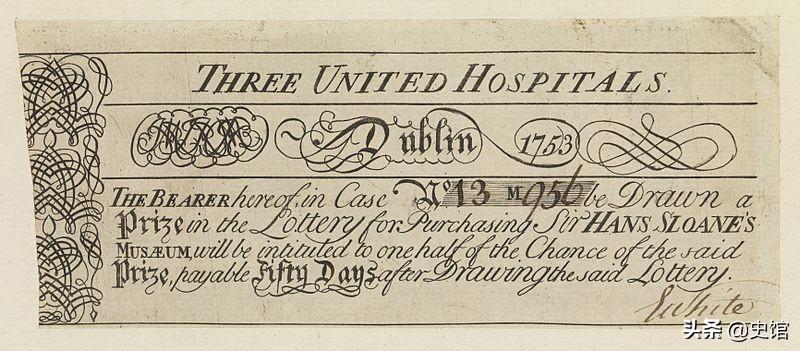 THREE UNITED HOSPITALS.
Dublin 1753
THE BEARER hereof, in Case No. 13 M 956 be Drawn a
Prize in the Lottery for Purchasing Sir HANS SLOANE'S
MUSÆUM, will be intituled to one half of the Chance of the said
Prize, payable Fifty Days after Drawing the said Lottery.
EWhite
头条 @史馆